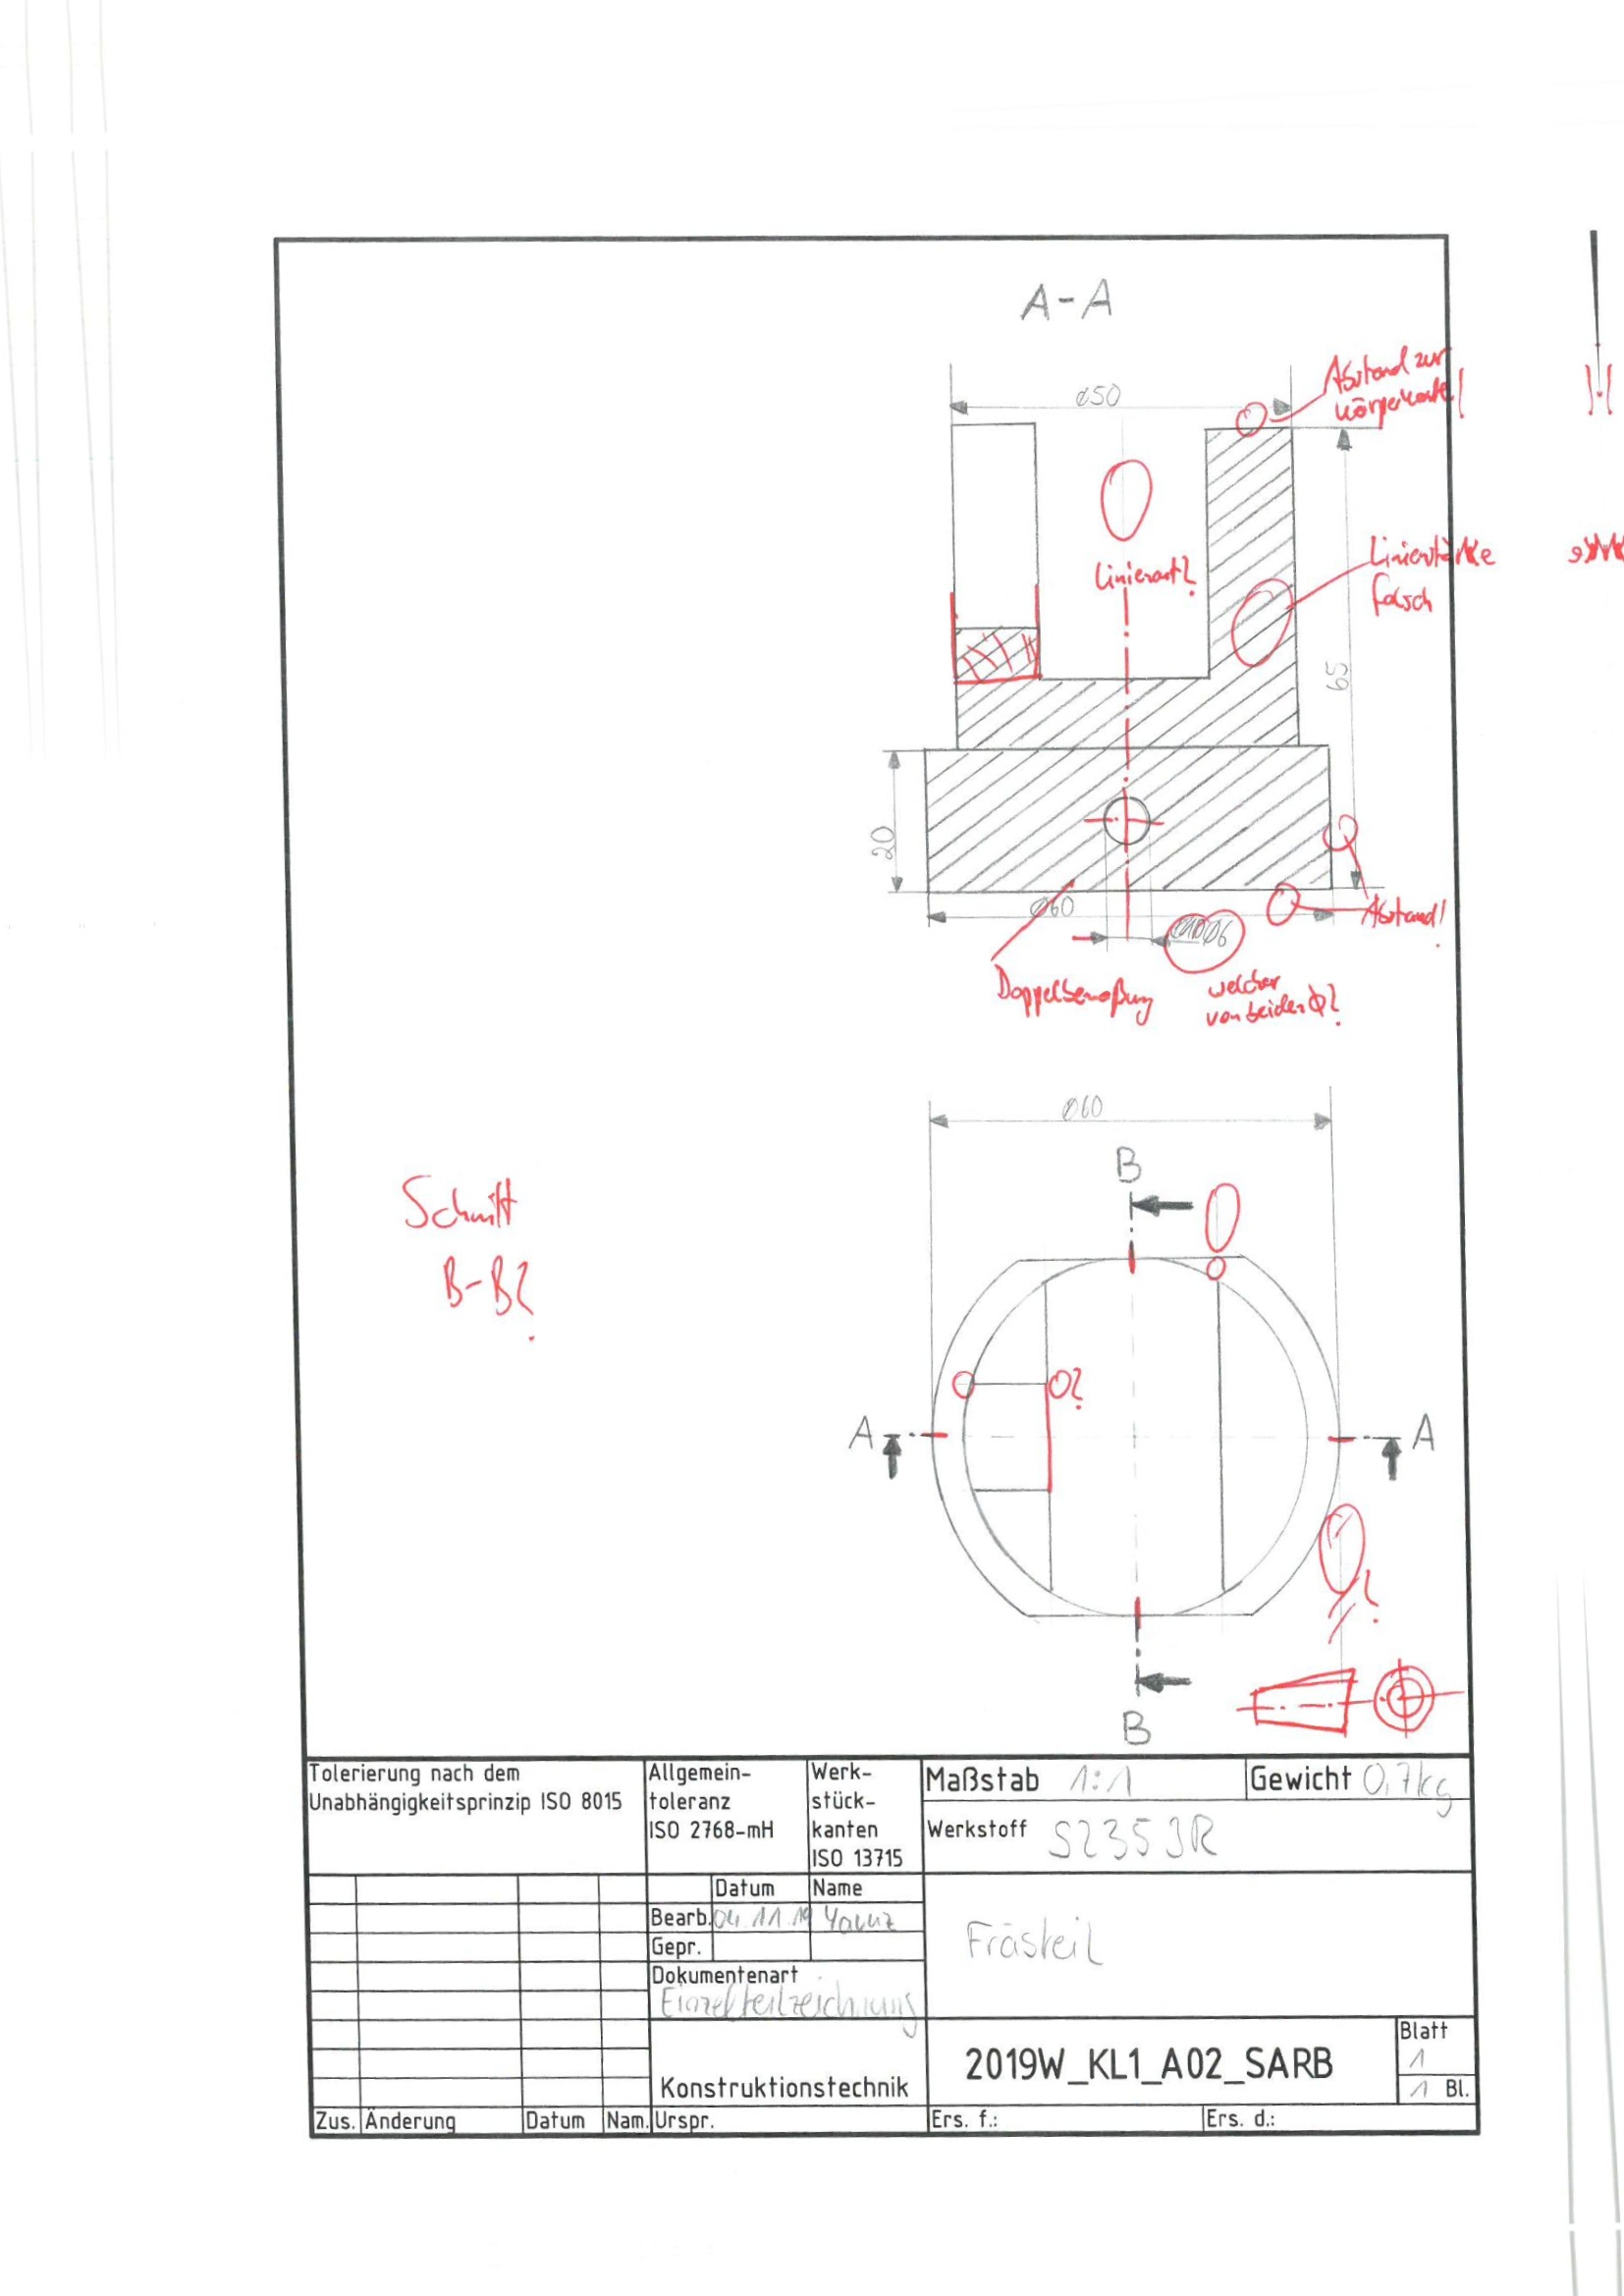 A-A
⌀50
Abstand zur
Körperkante!
Linienart?
Linienstärke
falsch
65
20
⌀60
Abstand!
Doppelbemaßung
welcher
von beiden ⌀?
⌀60
B
Schnitt
B-B?
?
A
A
?
B
Tolerierung nach dem
Unabhängigkeitsprinzip ISO 8015
Allgemein-
toleranz
ISO 2768-mH
Werk-
stück-
kanten
ISO 13715
Maßstab 1:1
Gewicht 0,7kg
Werkstoff S235JR
Datum
Name
Bearb. 04.11.19 Yavuz
Gepr.
Dokumentenart
Einzelteilzeichnung
Frästeil
Konstruktionstechnik
2019W_KL1_A02_SARB
Blatt
1
1 Bl.
Zus. Änderung Datum Nam. Urspr.
Ers. f.:
Ers. d.: